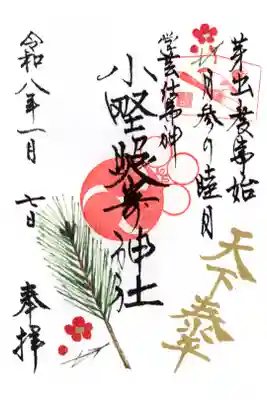 芽出度事始
月参り睦月
天下泰平
学芸仕事神
小野照崎神社
奉拝
令和八年一月
七日